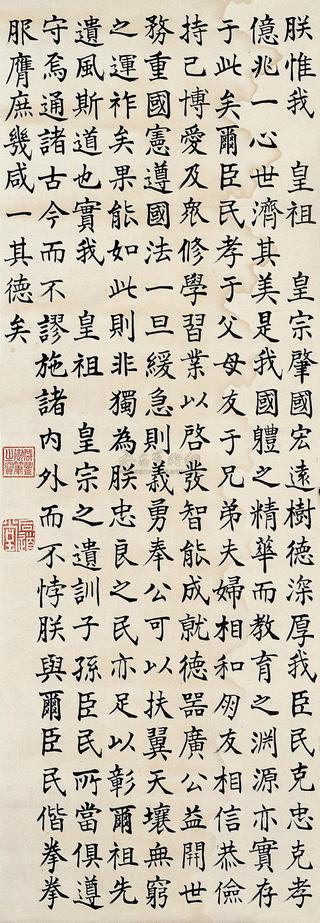 朕惟我　皇祖　皇宗肇國宏遠樹德深厚我臣民克忠克孝
億兆一心世濟其美是我國體之精華而教育之淵源亦實存
于此矣爾臣民孝于父母友于兄弟夫婦相和朋友相信恭儉
持己博愛及衆修學習業以啓發智能成就德器廣公益開世
務重國憲遵國法一旦緩急則義勇奉公可以扶翼天壤無窮
之運祚矣果能如此則非獨為朕忠良之民亦足以彰爾祖先
遺風斯道也實我　皇祖　皇宗之遺訓子孫臣民所當俱遵
守焉通諸古今而不謬施諸內外而不悖朕與爾臣民偕拳拳
服膺庶幾咸一其德矣